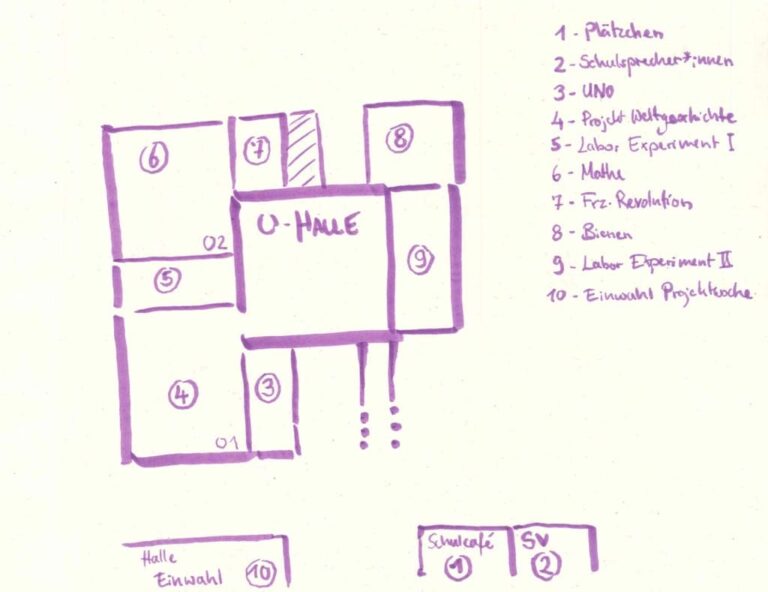 1 - Plätzchen
2 - Schulsprecher*innen
3 - UNO
4 - Projekt Weltgeschichte
5 - Labor Experiment I
6 - Mathe
7 - Frz. Revolution
8 - Bienen
9 - Labor Experiment II
10 - Einwahl Projektwoche
6
7
8
U-HALLE
02
5
9
4
3
01
Halle
Einwahl 10
Schulcafé
1
SV
2